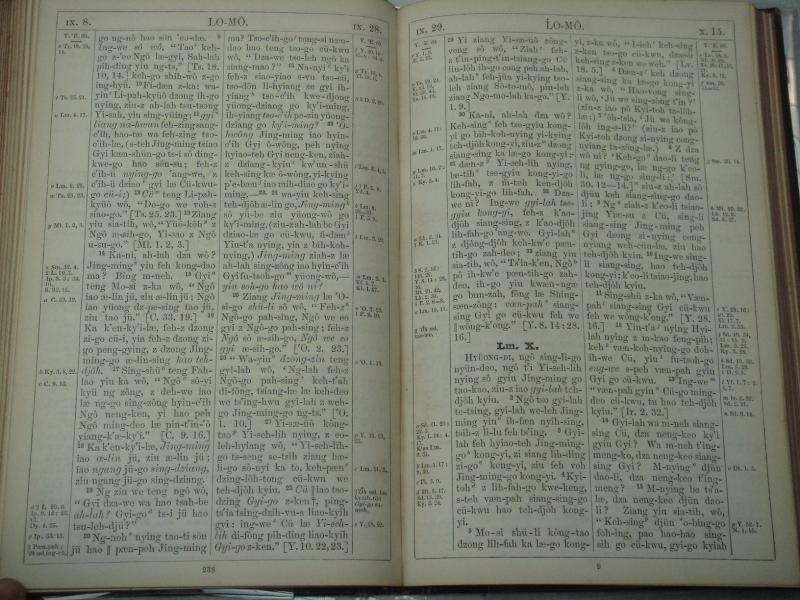 IX. 8.
LO-MÔ.
IX. 28.
go ng-nô hao sön 'eo-dæ. 9
Ing-we sô wô, "Tao' keh-
go z-'eo Ngô læ-gyi, Sah-lah
pih-ding yiu ng-ts," [Ts. 18.
10, 14.] keh-go shih-wô z-go
ing-hyü. 10 Feh-dæn z-ka: wa-
yiu' Li-pah-kyüô dzong ih-go
nying, ziu-z ah-lah tsu-tsong
Yi-sah, yiu sing-yüing; 11 gyi'
liang na-hwun feh-zing sang-
c'ih, hao-tæ wa feh-zing tso-
c'ih-læ, (s-teh Jing-ming tsiao
Gyi kæn-shün-go ts-i sô ding-
kwe-go hao sön-su; feh-z
c'ih-ü nying-go 'ang-we, z
c'ih-ü dziao' gyi læ Cü-kwu-
go ts-i;) 12 Cü' teng Li-pah-
kyüô wô, "Do-go we voh-z
siao-go." [Ts. 25. 23.] 13 Ziang
yiu sia-tih, wô, "Yüô-kôh' z
Ngô æ-sih-go, Yi-sao z Ngô
u-su-go." [Ml. 1. 2, 3.]
14 Ka-ni, ah-lah dza wô?
Jing-ming' yiu feh kong-dao
ma? Bing m-neh. 15 Gyi'
teng Mo-si z-ka wô, "Ngô
iao æ-lin jü, ziu æ-lin jü; Ngô
iao yüong dz-pe-sing tao jü,
ziu tao jü." [C. 33. 19.] 16
Ka k'en-ky'i-læ, feh-z dzong
zi-go cü-i, yia feh-z dzong zi-
go peng-gying, z dzong Jing-
ming-go æ-lin-sing hao teh-
djôh. 17 Sing-shü' teng Fah-
lao yiu ka wô, "Ngô' sô-yi
kyü ng zông, z deh-we iao
læ ng-go sing-zông hyin-c'ih
Ngô neng-ken, yi hao peh
Ngô ming-deo læ pin-t'in-'ô
yiang-k'æ-ky'i." [C. 9. 16.]
18 Ka k'en-ky'i-læ, Jing-ming
iao æ-lin jü, ziu æ-lin jü;
iao ngang jü-go sing-dziang,
ziu ngang jü-go sing-dziang.
19 Ng ziu we teng ngô wô,
"Gyi dza-we wa hao tsah-be
ah-lah? Gyi-go' ts-i jü hao
tsu-leh-djü?"
20 Ng-noh' nying tao-ti sön
jü hao ‖ pæn-poh Jing-ming
ma? Tso-c'ih-go' tong-si næn-
dao hao teng tso-go cü-kwu
wô, "Dza-we tso-leh ngô ka
siang-mao?" 21 Na-nyi' ky'i
feh-z siao-yiao s-vu tso-cü,
tso-dön li-hyiang ze gyi ih-
yiang' tso-c'ih kwe-djong
yüong-dziang go ky'i-ming,
ih-yiang tso-c'ih pe-zin yüong-
dziang go ky'i-ming? 22 'Ô-
hwông Jing-ming iao hyin-
c'ih Gyi ô-wông, peh nying
hyiao-teh Gyi neng-ken, ziah-
z dziang-kyiu' kw'un-shü
keh-sing kæ ô-wông, yi-kying
yü-be' iao mih-diao go ky'i-
ming, 23, 24 wa-yiu keh-sing
teh-djôh æ-lin-go, Jing-ming'
sô yü-be ziu yüong-wô go
ky'i-ming, (ziu-zah-lah be Gyi
dziao-læ go cü-kwu, ti-dæn'
Yiu-t'a nying, yia z bih-koh-
nying,) Jing-ming ziah-z læ
ah-lah sing-zông iao hyin-c'ih
Gyi fu-tsoh-go' yüong-wô,—
yia soh-go hao wô ni?
25 Ziang Jing-ming læ 'O-
si-go shü-li sô wô, "Feh-z'
Ngô-go pah-sing, Ngô we eo
gyi z Ngô-go pah-sing; feh-z
Ngô sô æ-sih-go, Ngô we eo
gyi æ-sih-go." [O. 2. 23.]
26 "Wa-yiu' dzong-zin teng
gyi-lah wô, 'Ng-lah feh-z
Ngô-go pah-sing' keh-t'ah
di-fông, tsiang-læ læ keh-deo
we ts'ing-hwu gyi-lah z weh-
go Jing-ming-go ng-ts." [O.
1. 10.] 27 Yi-sæ-üô kông-
tao' Yi-seh-lih nying, z eo-
leh-hyiang wô, "Yi-seh-lih-
go ts-seng se-tsih ziang hæ-
li-go sô-nyi ka to, keh-pæn'
dzing-lôh-tong cü-kwu we
teh-djôh kyiu. 28 Cü ‖ iao tso-
dzing Gyi-go z-ken †, ping-
ts'ia tsing-dzih-vu-s liao-kyih
gyi: ing-we' Cü læ Yi-seh-
lih di-fông pih-ding liao-kyih
Gyi-go z-ken." [Y. 10. 22, 23.]
238
IX. 29.
LO-MÔ.
X. 15.
29 Yi ziang Yi-sæ-üô zông-
veng sô wô, "Ziah' feh-
z t'in-ping-t'in-tsiang-go Cü
liu-lôh ih-go cong peh ah-lah,
ah-lah' feh-jün yi-kying tso-
leh ziang Sô-to-mô, pin-leh
ziang Ngo-mo-lah ka-go." [Y.
1. 9.]
30 Ka-ni, ah-lah dza wô?
Keh-sing' feh tse-gyiu kong-
yi go bih-koh-nying yi-kying
teh-djôh kong-yi, ziu-z' dzong
siang-sing ka læ-go kong-yi:
31 dæn-z' Yi-seh-lih nying,
læ-tih' tse-gyiu kong-yi-go
lih-fah, z m-teh ken-djôh
kong-yi-go lih-fah. 32 Dza-
we ni? Ing-we gyi-lah tse-
gyiu kong-yi, feh-z k'ao-
djôh siang-sing, z k'ao-djôh
lih-fah-go 'ang-we. Gyi-lah'
z djông-djôh keh-kw'e pæn-
tih-go zah-deo; 33 ziang yiu
sia-tih, wô, "Ts'ia-k'en, Ngô'
pô ih-kw'e pæn-tih-go zah-
deo, ih-go yiu kwæn-ngæ
go bun-zah, fông læ Shing-
sæn-zông; væn-pah' siang-
sing Gyi go cü-kwu feh we
‖ wông-k'ong." [Y. 8. 14: 28.
16.]
Lm. X.
HYÜONG-DI, ngô sing-li-go
nyün-deo, ngô t'i Yi-seh-lih
nying sô gyiu Jing-ming go
tao-kao, ziu-z iao gyi-lah teh-
djôh kyiu. 2 Ngô tso gyi-lah
te-tsing, gyi-lah we-leh Jing-
ming yin' ih-fæn nyih-sing,
tsih-z li-lu feh ts'ing. 3 Gyi-
lah feh hyiao-teh Jing-ming-
go' kong-yi, zi siang lih-ding
zi-go' kong-yi, ziu feh voh
Jing-ming-go kong-yi. 4 Kyi-
toh' z lih-fah-go kwe-keng,
s-teh væn-pah siang-sing-go
cü-kwu hao teh-djôh kong-
yi.
5 Mo-si shü-li kông-tao
dzong lih-fah ka læ-go kong-
yi, z-ka wô, "I-leh' keh-sing
z-ken tso-go cü-kwu, we læ
keh-sing z-ken we weh." [Lv.
18. 5.] 6 Dæn-z' keh dzong
siang-sing ka læ-go kong-yi
z-ka wô, "Hao-vong sing-
li wô, 'Jü we sing-zông t'in?'
(ziu-z iao pô Kyi-toh ta-lôh-
læ:) 7 'ôh-tsia, 'Jü we kông-
lôh ing-s-li?' (ziu-z iao pô
Kyi-toh dzong si-nying cong-
yiang ta-zông-læ.) 8 Z dza
wô ni? 'Keh-go' dao-li teng
ng gying-go, læ ng-go k'eo-
li, læ ng-go sing-li:' [Sm.
30. 12—14.]" ziu-z ah-lah sô
djün keh siang-sing-go dao-
li; 9 Ng' ziah-z k'eo-li tsiao-
jing Yiæ-su z Cü, sing-li
siang-sing Jing-ming peh
Gyi dzong si-nying cong-
yiang weh-cün-læ, ziu hao
teh-djôh kyiu. 10 Ing-we sing-
li siang-sing, hao teh-djôh
kong-yi; k'eo-li tsiao-jing, hao
teh-djôh kyiu.
11 Sing-shü z-ka wô, "Væn-
pah' siang-sing Gyi cü-kwu
feh we wông-k'ong." [Y. 28.
16.] 12 Yiu-t'a' nying Hyi-
lah nying z m-kao feng-pih;
keh' z væn-koh-nying-go dôh-
ih-we Cü, yiu' fu-tsoh-go
eng-we s-peh væn-pah gyiu
Gyi-go cü-kwu. 13 "Ing-we"
"væn-pah gyiu' Cü-go ming-
deo cü-kwu, tu hao teh-djôh
kyiu." [Ir. 2. 32.]
14 Gyi-lah wa m-neh siang-
sing Cü, dza neng-keo ky'i
gyiu Gyi? Wa m-neh t'ing-
meng-ko, dza neng-keo siang-
sing Gyi? M-nying' djün
dao-li, dza neng-keo t'ing-
meng? 15 M-nying be ts'a-
læ, dza neng-keo djün dao-
li? Ziang yiu sia-tih, wô,
"Keh-sing' djün 'o-bing-go
foh-ing, pao hao-bao sing-
sih go cü-kwu, gyi-go kyiah
9